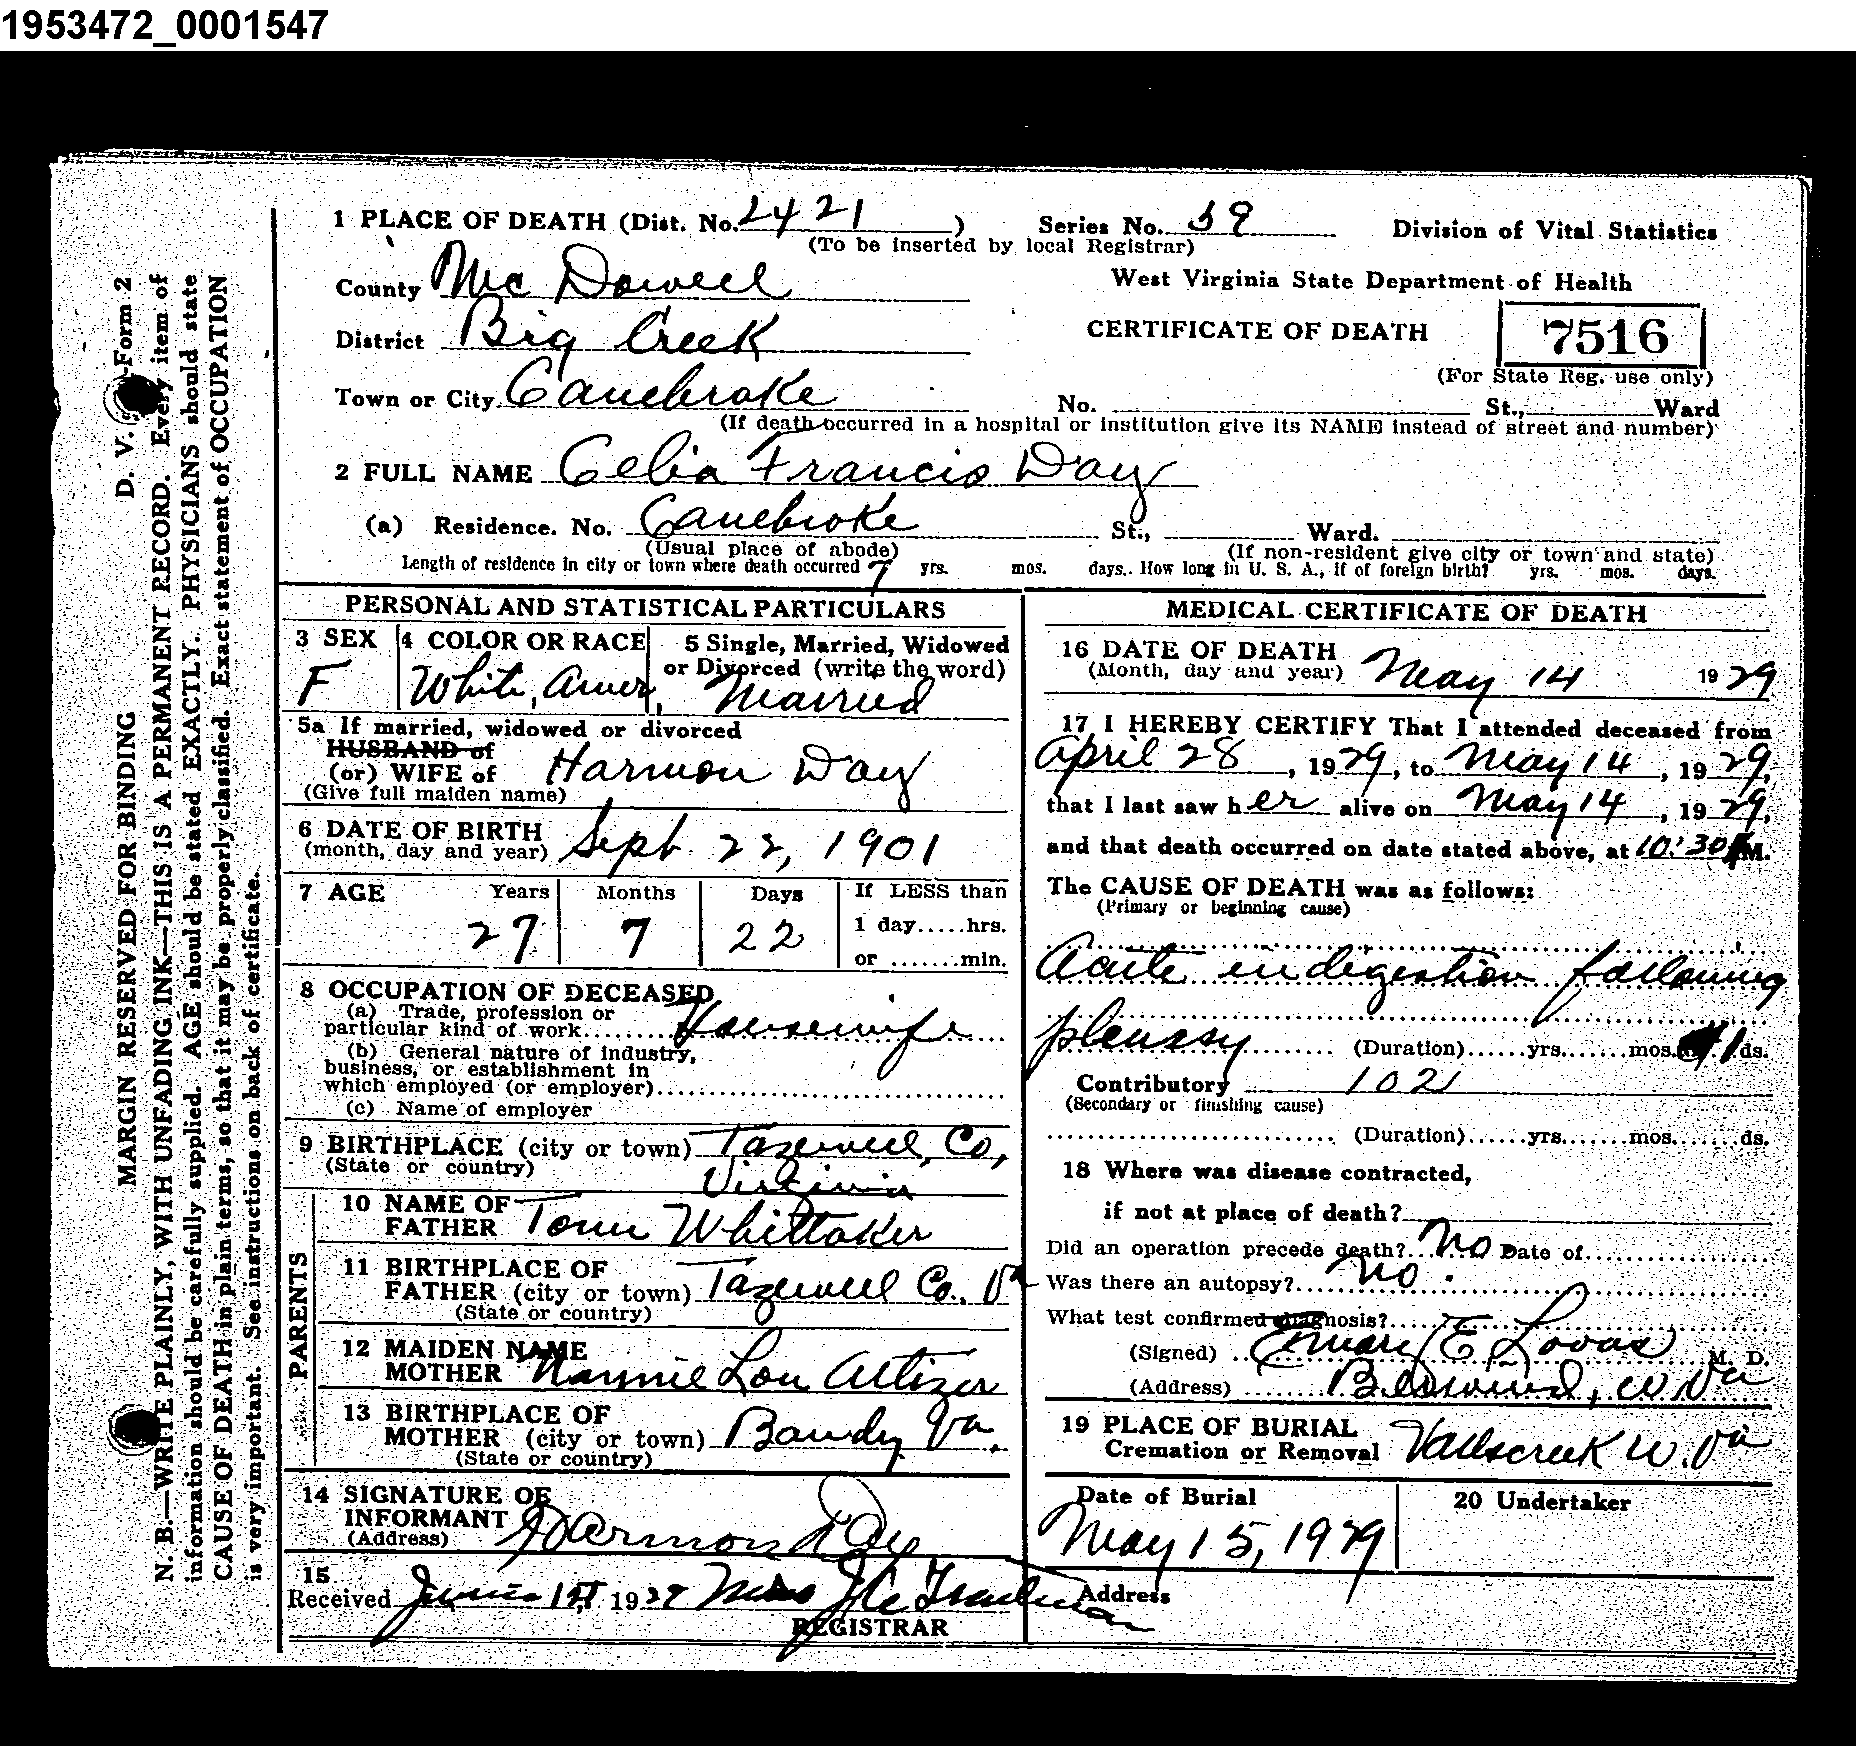 1953472_0001547
1 PLACE OF DEATH (Dist. No. 2421 ) Series No. 59 Division of Vital Statistics
(To be inserted by local Registrar)
County Mc Dowell West Virginia State Department of Health
District Big Creek CERTIFICATE OF DEATH 7516
(For State Reg. use only)
Town or City Canebrake No. St., Ward
(If death occurred in a hospital or institution give its NAME instead of street and number)
2 FULL NAME Celia Francis Day
(a) Residence. No. Canebrake St., Ward.
(Usual place of abode) (If non-resident give city or town and state)
Length of residence in city or town where death occurred 7 yrs. mos. days. How long in U. S. A., if of foreign birth? yrs. mos. days.
PERSONAL AND STATISTICAL PARTICULARS
3 SEX 4 COLOR OR RACE 5 Single, Married, Widowed
or Divorced (write the word)
F White, Amer. Married
5a If married, widowed or divorced
HUSBAND of
(or) WIFE of Harmon Day
(Give full maiden name)
6 DATE OF BIRTH
(month, day and year) Sept. 22, 1901
7 AGE Years Months Days If LESS than
27 7 22 1 day.....hrs.
or .......min.
8 OCCUPATION OF DECEASED
(a) Trade, profession or
particular kind of work Housewife
(b) General nature of industry,
business, or establishment in
which employed (or employer)
(c) Name of employer
9 BIRTHPLACE (city or town) Tazewell, Co,
(State or country) Virginia
PARENTS
10 NAME OF
FATHER Tom Whittaker
11 BIRTHPLACE OF
FATHER (city or town) Tazewell Co. Va
(State or country)
12 MAIDEN NAME
MOTHER Nannie Lou Altizer
13 BIRTHPLACE OF
MOTHER (city or town) Bandy Va.
(State or country)
14 SIGNATURE OF
INFORMANT Harmon Day
(Address)
15
Received June 1st 1929 J C
REGISTRAR
MEDICAL CERTIFICATE OF DEATH
16 DATE OF DEATH
(Month, day and year) May 14 1929
17 I HEREBY CERTIFY That I attended deceased from
April 28, 1929, to May 14, 1929,
that I last saw her alive on May 14, 1929,
and that death occurred on date stated above, at 10:30 M.
The CAUSE OF DEATH was as follows:
(Primary or beginning cause)
Acute indigestion following
pleurasy (Duration)......yrs.......mos. ds.
Contributory 1021
(Secondary or finishing cause)
(Duration)......yrs.......mos.......ds.
18 Where was disease contracted,
if not at place of death?
Did an operation precede death? No Date of
Was there an autopsy? No.
What test confirmed diagnosis?
(Signed) Emory E Lovas M. D.
(Address) Berwind, W. Va
19 PLACE OF BURIAL
Cremation or Removal Vallscreek W. Va
Date of Burial 20 Undertaker
May 15, 1929
Address
MARGIN RESERVED FOR BINDING D. V. -Form 2
N. B.—WRITE PLAINLY, WITH UNFADING INK—THIS IS A PERMANENT RECORD. Every item of
information should be carefully supplied. AGE should be stated EXACTLY. PHYSICIANS should state
CAUSE OF DEATH in plain terms, so that it may be properly classified. Exact statement of OCCUPATION
is very important. See instructions on back of certificate.